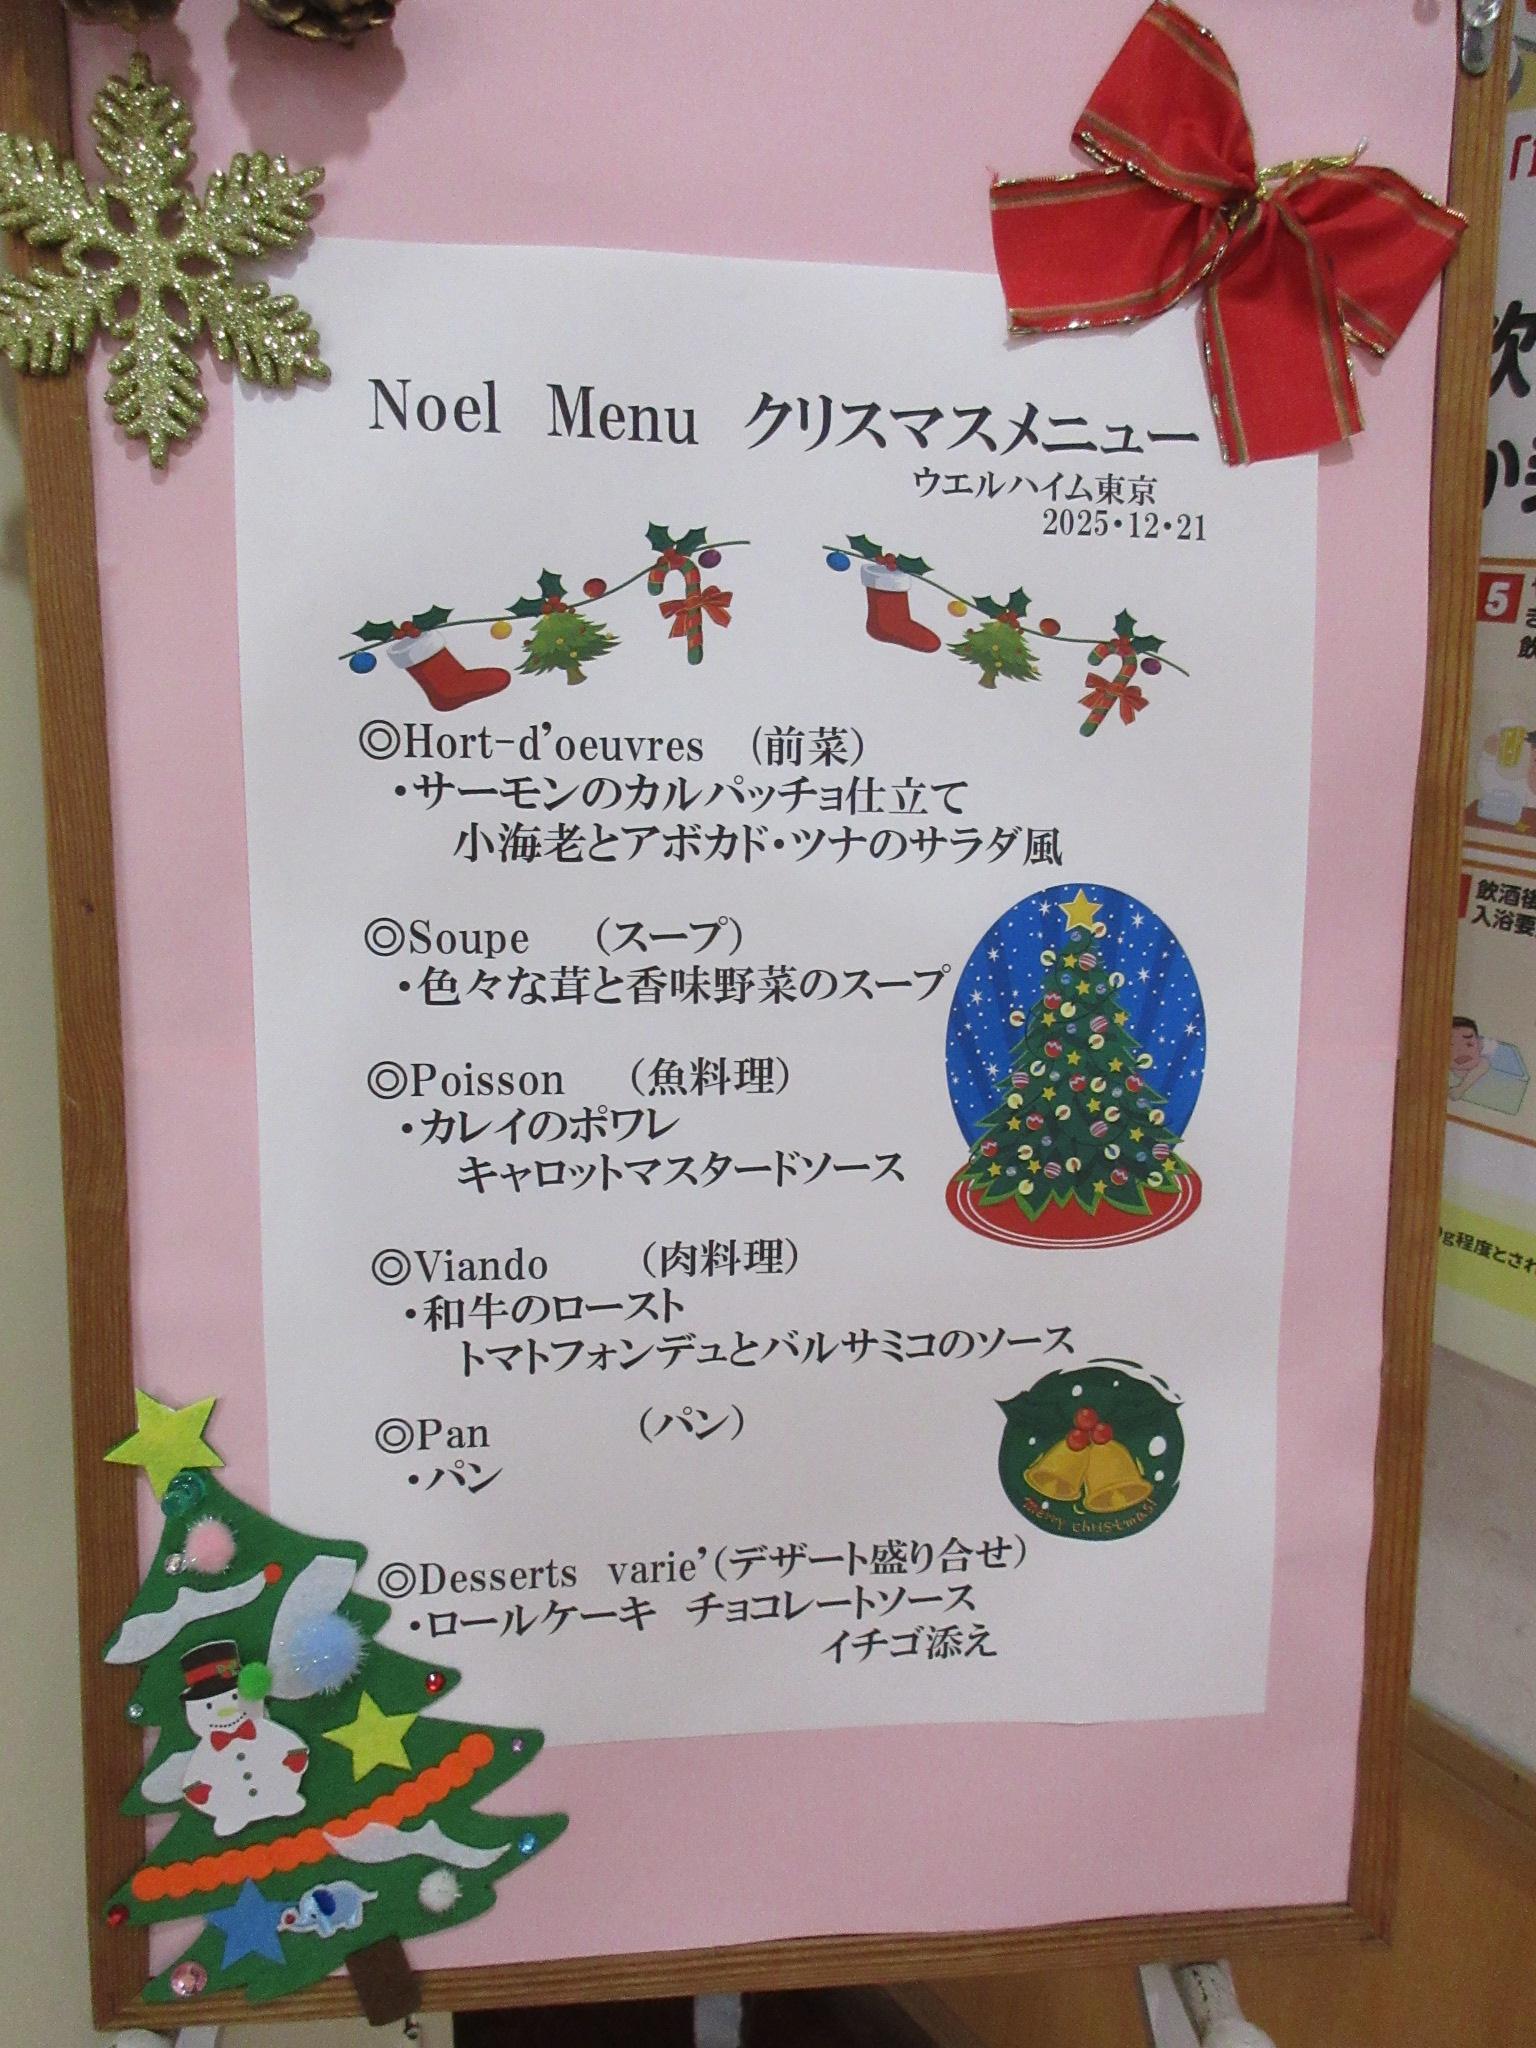 Noel Menu クリスマスメニュー
ウエルハイム東京
2025・12・21
◎Hort-d'oeuvres (前菜)
・サーモンのカルパッチョ仕立て
小海老とアボカド・ツナのサラダ風
◎Soupe (スープ)
・色々な茸と香味野菜のスープ
◎Poisson (魚料理)
・カレイのポワレ
キャロットマスタードソース
◎Viando (肉料理)
・和牛のロースト
トマトフォンデュとバルサミコのソース
◎Pan (パン)
・パン
Merry christmas!
◎Desserts varie'(デザート盛り合せ)
・ロールケーキ チョコレートソース
イチゴ添え
5
飲酒後
入浴要
g程度とされ